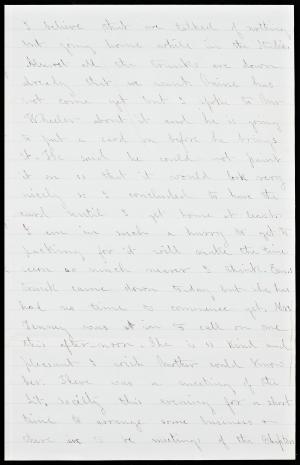 I believe that we talked of nothing
but going home
Almost all the trunks are down
already that we want. has
not come yet but I spoke to Mr.
Wheeler about it and he is going
to put a card on before he brings
it. He said he could not paint
it on so that it would look very
nicely so I concluded to have the
card until I get home at least.
I am in such a hurry to get to
packing for it will make the time
seem so much nearer I think.
trunk came down today but she has
had no time to commence yet.
was in to call on me
this afternoon. She is so kind and
pleasant I wish Mother could know
her. There was a meeting of the
Lit. society this evening for a short
time to arrange some business &
there are to be meetings of the